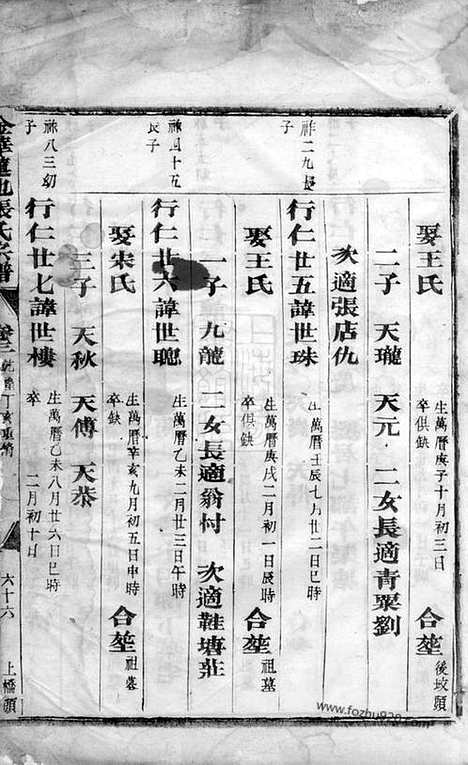 娶王氏 生萬曆庚子十月初三日 卒俱缺 合塋後坟頭
二子 天瓏 天元 二女長適青粟劉
次適張店仇
祚二九長
行仁廿五諱世珠 生萬曆壬辰七月廿二日巳時
娶王氏 生萬曆庚戌二月初一日辰時 卒俱缺 合塋祖墓
一子 九龍 二女長適翁村 次適鞋塘莊
祿四十五
長子
行仁廿六諱世聰 生萬曆乙未二月廿三日午時
娶宋氏 生萬曆辛亥九月初五日申時 卒缺 合塋祖
三子 天秋 天傅 天恭
祿八三幼
子
行仁廿七諱世樓 生萬曆乙未八月廿六日巳時 卒 二月初十日
張氏宗譜 卷三 乾隆丁亥重 六十六 上橋頭
www.fozhu920.com